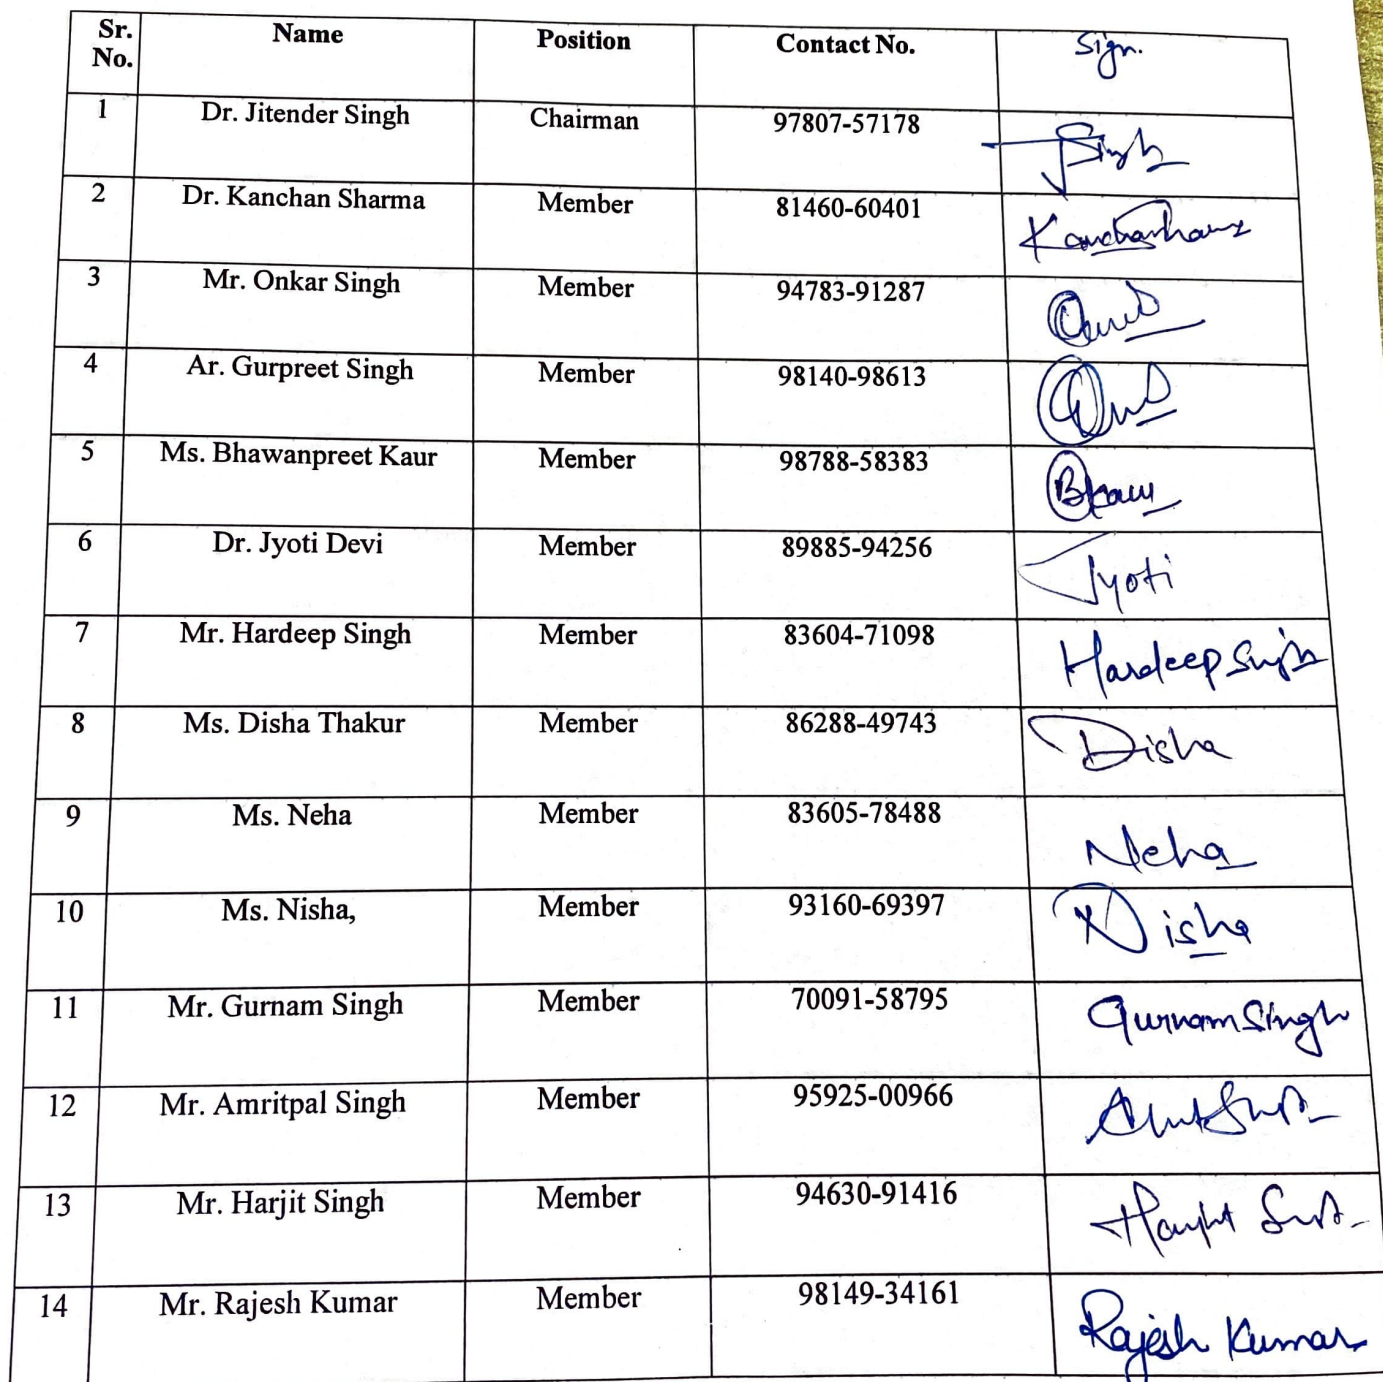 Sr. No. Name Position Contact No. Sign.
1 Dr. Jitender Singh Chairman 97807-57178 Singh
2 Dr. Kanchan Sharma Member 81460-60401
3 Mr. Onkar Singh Member 94783-91287
4 Ar. Gurpreet Singh Member 98140-98613
5 Ms. Bhawanpreet Kaur Member 98788-58383 BKaur
6 Dr. Jyoti Devi Member 89885-94256 Jyoti
7 Mr. Hardeep Singh Member 83604-71098 Hardeep Singh
8 Ms. Disha Thakur Member 86288-49743 Disha
9 Ms. Neha Member 83605-78488 Neha
10 Ms. Nisha, Member 93160-69397 Nisha
11 Mr. Gurnam Singh Member 70091-58795 Gurnam Singh
12 Mr. Amritpal Singh Member 95925-00966
13 Mr. Harjit Singh Member 94630-91416
14 Mr. Rajesh Kumar Member 98149-34161 Rajesh Kumar